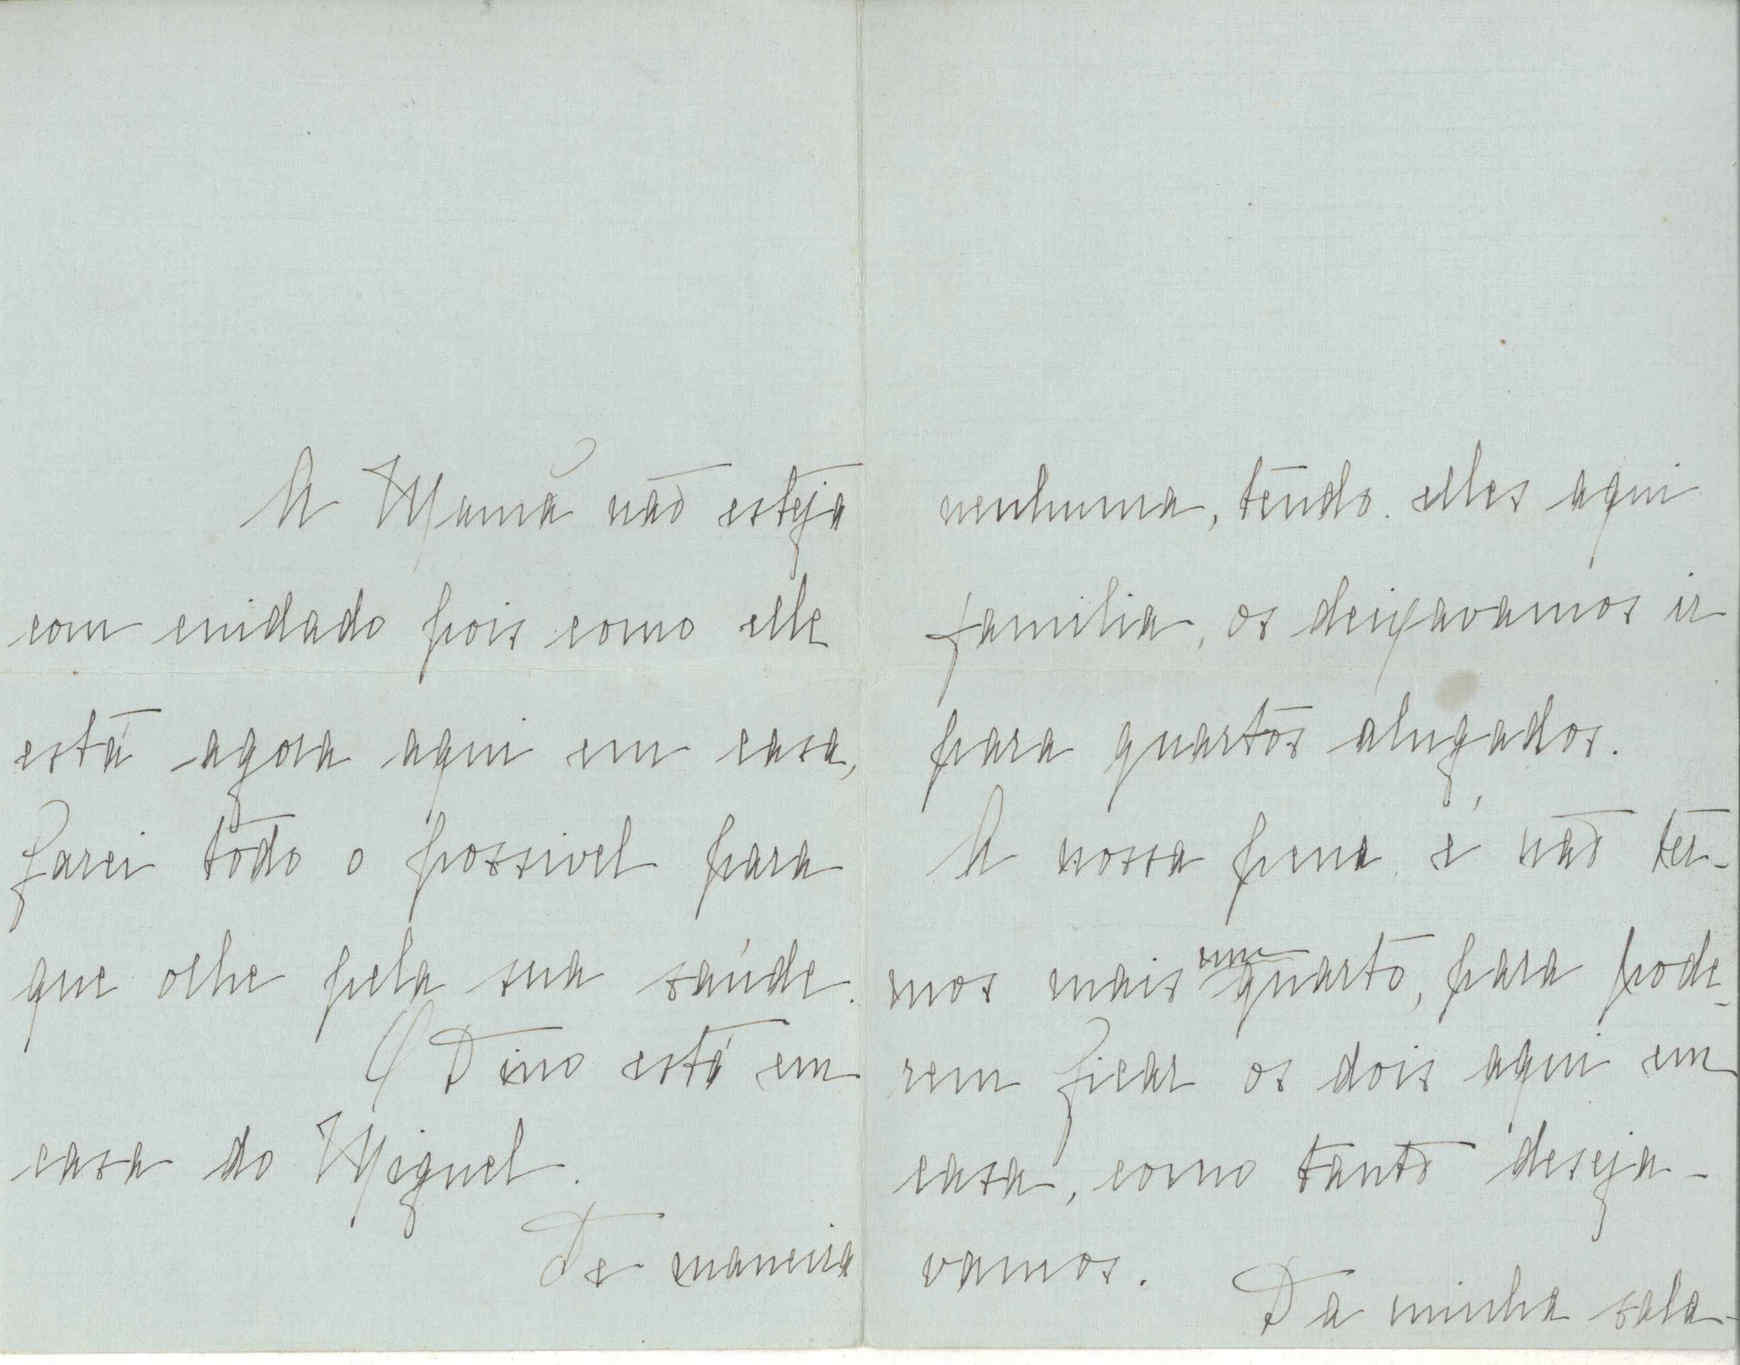 A Mamã não esteja
com cuidado pois como elle
está agora aqui em casa,
farei todo o possivel para
que olhe pela sua saúde.
O Dino está em
casa do Miguel.
De maneira
nenhuma, tendo elles aqui
familia, os deixavamos ir
para quartos alugados.
A nossa pena é não ter-
mos mais um quarto, para pode-
rem ficar os dois aqui em
casa, como tanto deseja-
vamos.
Da minha sala-